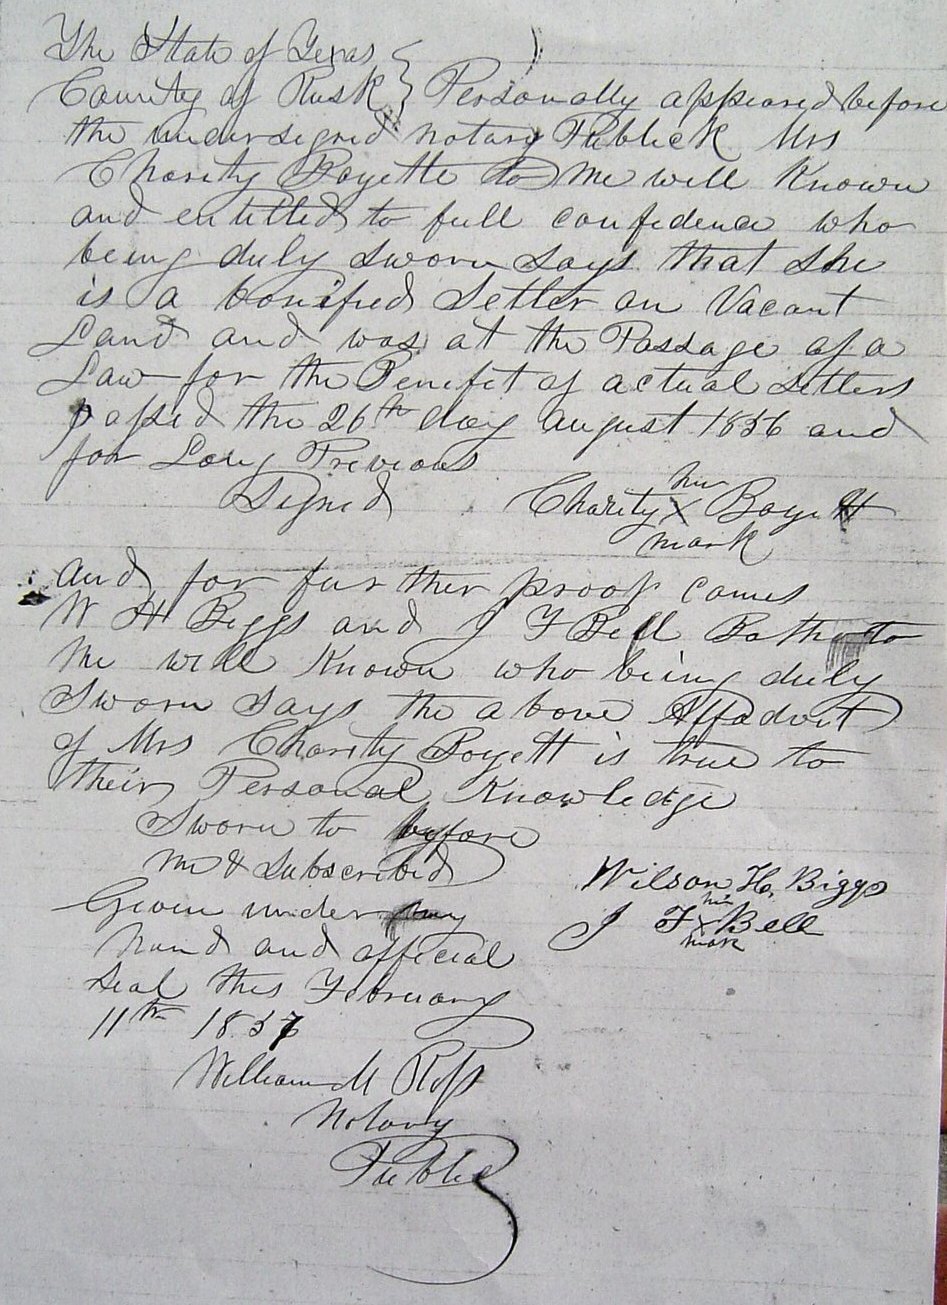 The State of Texas }
County of Rusk } Personally appeared before
the undersigned notary Publick Mrs
Charity Boyette to me well Known
and entitled to full confidence who
being duly sworn says that she
is a bonified Setler on Vacant
Land and was at the Passage of a
Law for the Benefit of actual Setlers
passed the 26th day august 1856 and
for Long Previous
Signed Charity her X mark Boyett
and for further proof comes
W H Biggs and J F Bell Both to
me well Known who being duly
Sworn says the above Affadvit
of Mrs Charity Boyett is true to
their Personal Knowledge
Sworn to before
me & Subscribed
Wilson H. Biggs
J F his X mark Bell
Given under my
hand and official
Seal this February
11th 1857
William M Ross
Notary
Public